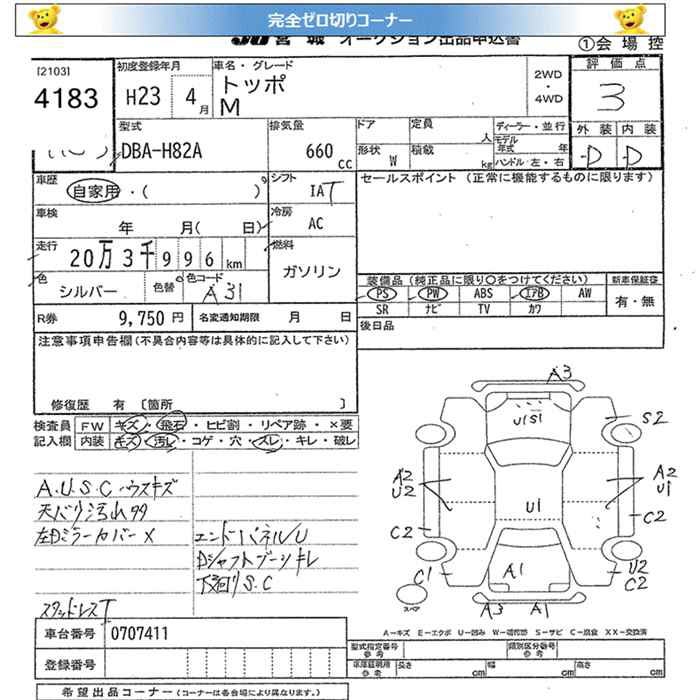 完全ゼロ切りコーナー
JU 宮城 オークション出品申込書 ①会場控
[2103]
4183
初度登録年月 H23 4月
車名・グレード トッポ M
2WD・4WD
評価点 3
外装 内装
D D
型式 DBA-H82A
排気量 660 cc
ドア 形状 W
定員 人 積載 kg
ディーラー・並行
モデル年式 年
ハンドル 左・右
車歴 自家用・( )
シフト IAT
セールスポイント (正常に機能するものに限ります)
車検 年 月( 日)
冷房 AC
走行 20万3千996km
燃料 ガソリン
色 シルバー 色替 色コード A31
装備品 (純正品に限り○をつけてください) 新車保証書
PS PW ABS エアB AW 有・無
SR ナビ TV カワ
R券 9,750 円 名変通知期限 月 日
後日品
注意事項申告欄(不具合内容等は具体的に記入して下さい)
修復歴 有 〔箇所 〕
検査員記入欄 FW キズ・飛石・ヒビ割・リペア跡・×要
内装 キズ・汚レ・コゲ・穴・スレ・キレ・破レ
A.U.S.C ハウスキズ
天バリ汚れ99
左Dミラーカバー×
エンドパネルU
Dシャフトブーツキレ
下廻りS.C
スタッドレスT
A3
U1 S1
S2
A2 U2
A2 U1
U1
C2
C2
C1
A1
U2 C2
スペア
A3 A1
A―キズ E―エクボ U―凹み W―補修跡 S―サビ C―腐食 XX―交換済
車台番号 0707411
登録番号
型式指定番号 参考
類別区分番号 参考
車庫証明用 参考 長さ cm 幅 cm 高さ cm
希望出品コーナー (コーナーは各会場により異なります。)